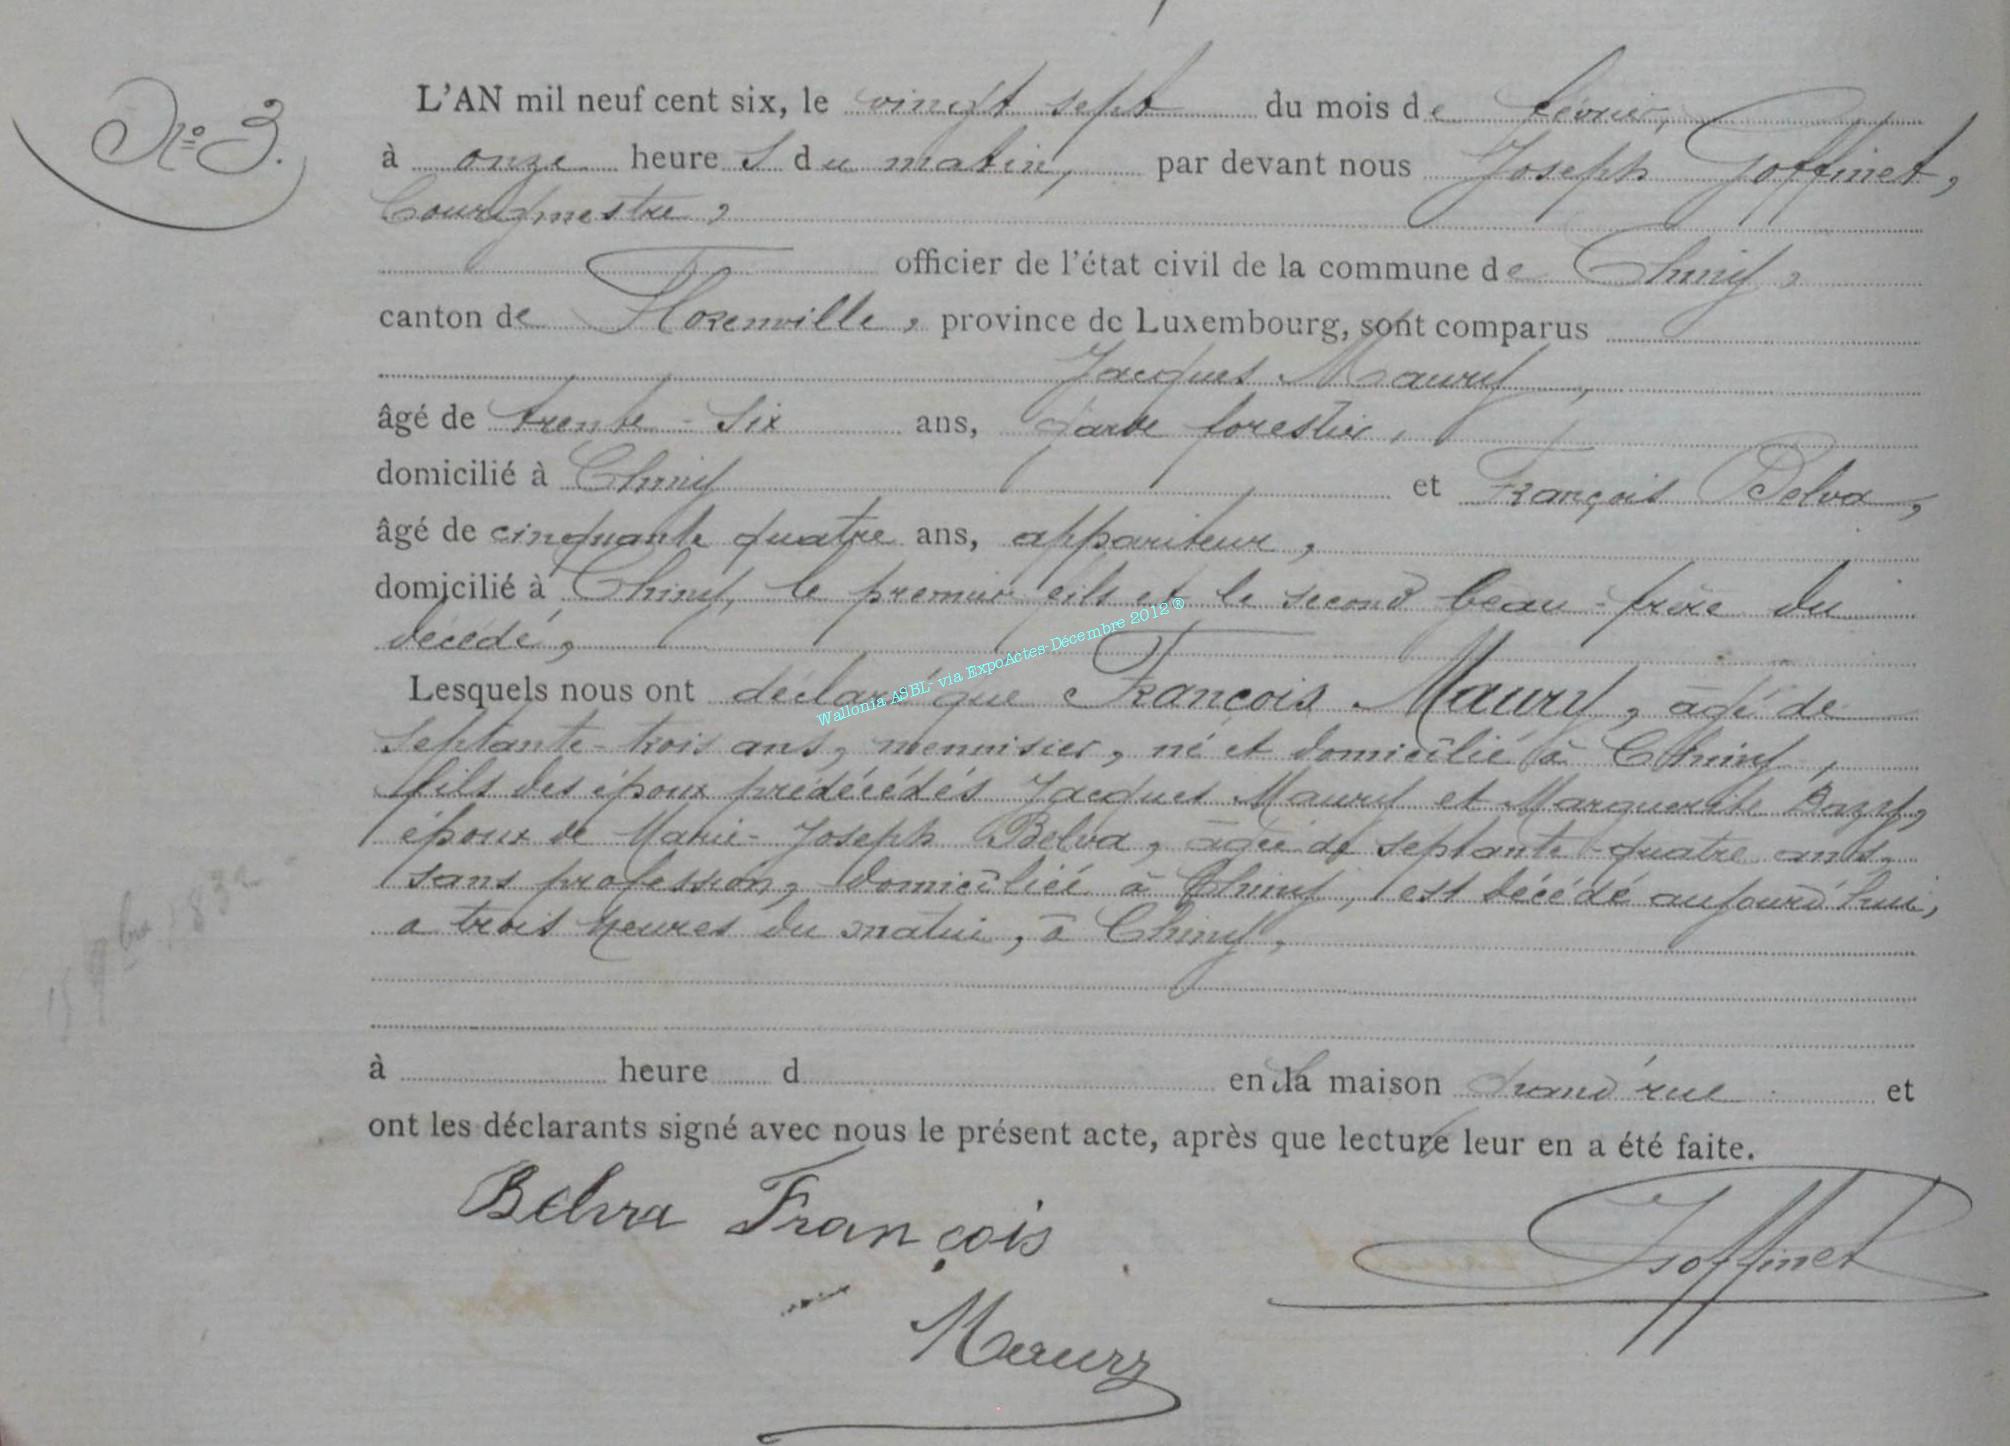 N° 3.
L'AN mil neuf cent six, le vingt sept du mois de février,
à onze heure s du matin, par devant nous Joseph Goffinet,
bourgmestre,
officier de l'état civil de la commune de Chiny,
canton de Florenville, province de Luxembourg, sont comparus
Jacques Maury,
âgé de trente-six ans, garde forestier,
domicilié à Chiny et François Belva,
âgé de cinquante quatre ans, appariteur,
domicilié à Chiny, le premier fils et le second beau-frère du
décédé,
Lesquels nous ont déclaré que François Maury, âgé de
septante-trois ans, menuisier, né et domicilié à Chiny,
fils des époux prédécédés Jacques Maury et Marguerite Bazy,
époux de Marie-Joseph Belva, âgée de septante-quatre ans,
sans profession, domiciliée à Chiny, est décédé aujourd'hui,
a trois heures du matin, à Chiny,
15 9bre 1832
à heure d en sa maison Grand'rue et
ont les déclarants signé avec nous le présent acte, après que lecture leur en a été faite.
Belva François
Goffinet
Maury
Wallonia ASBL- via ExpoActes-Décembre 2012 ®